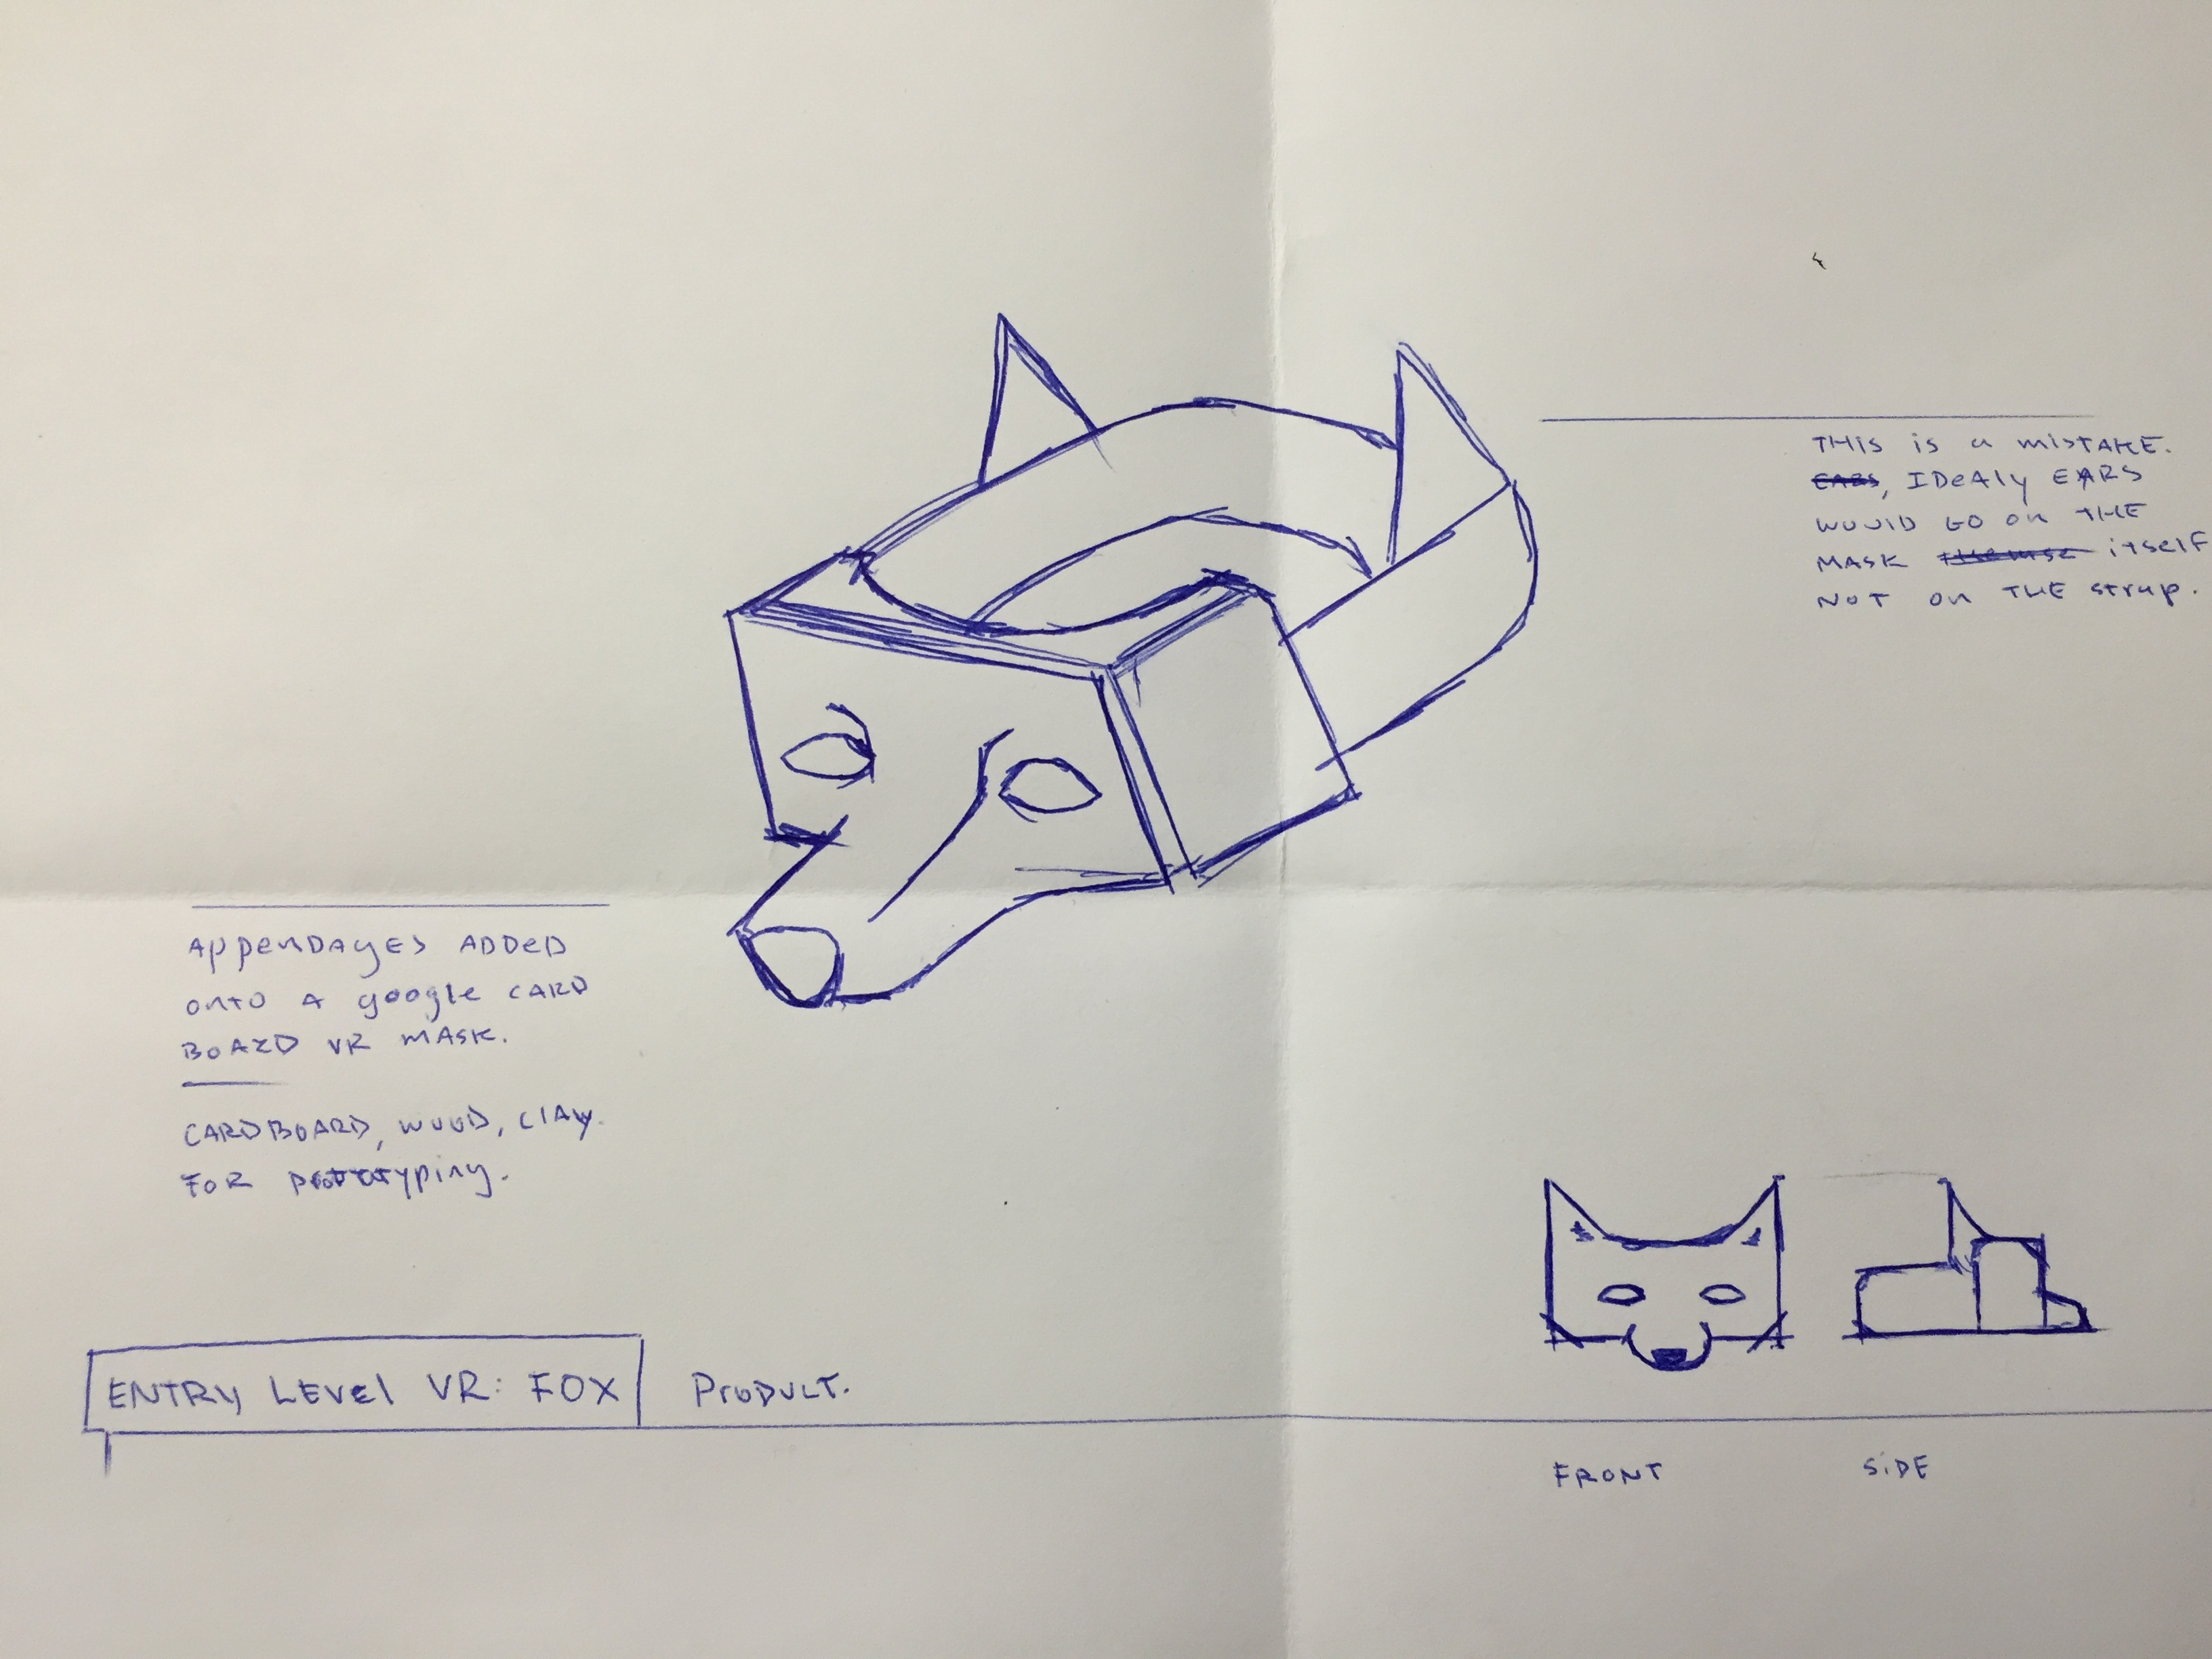 THIS is a mISTAKE.
EARS, IDeAly EARS
WOUlD GO on THE
MASK itself
NOT on THE strap.
AppenDAgES ADDeD
onto A google CARD
BOARD VR MASK.
CARDBOARD, WOOD, ClAy.
FOR prototyping.
ENTRy LEVEl VR: FOX PRODUCT.
FRONT SiDE